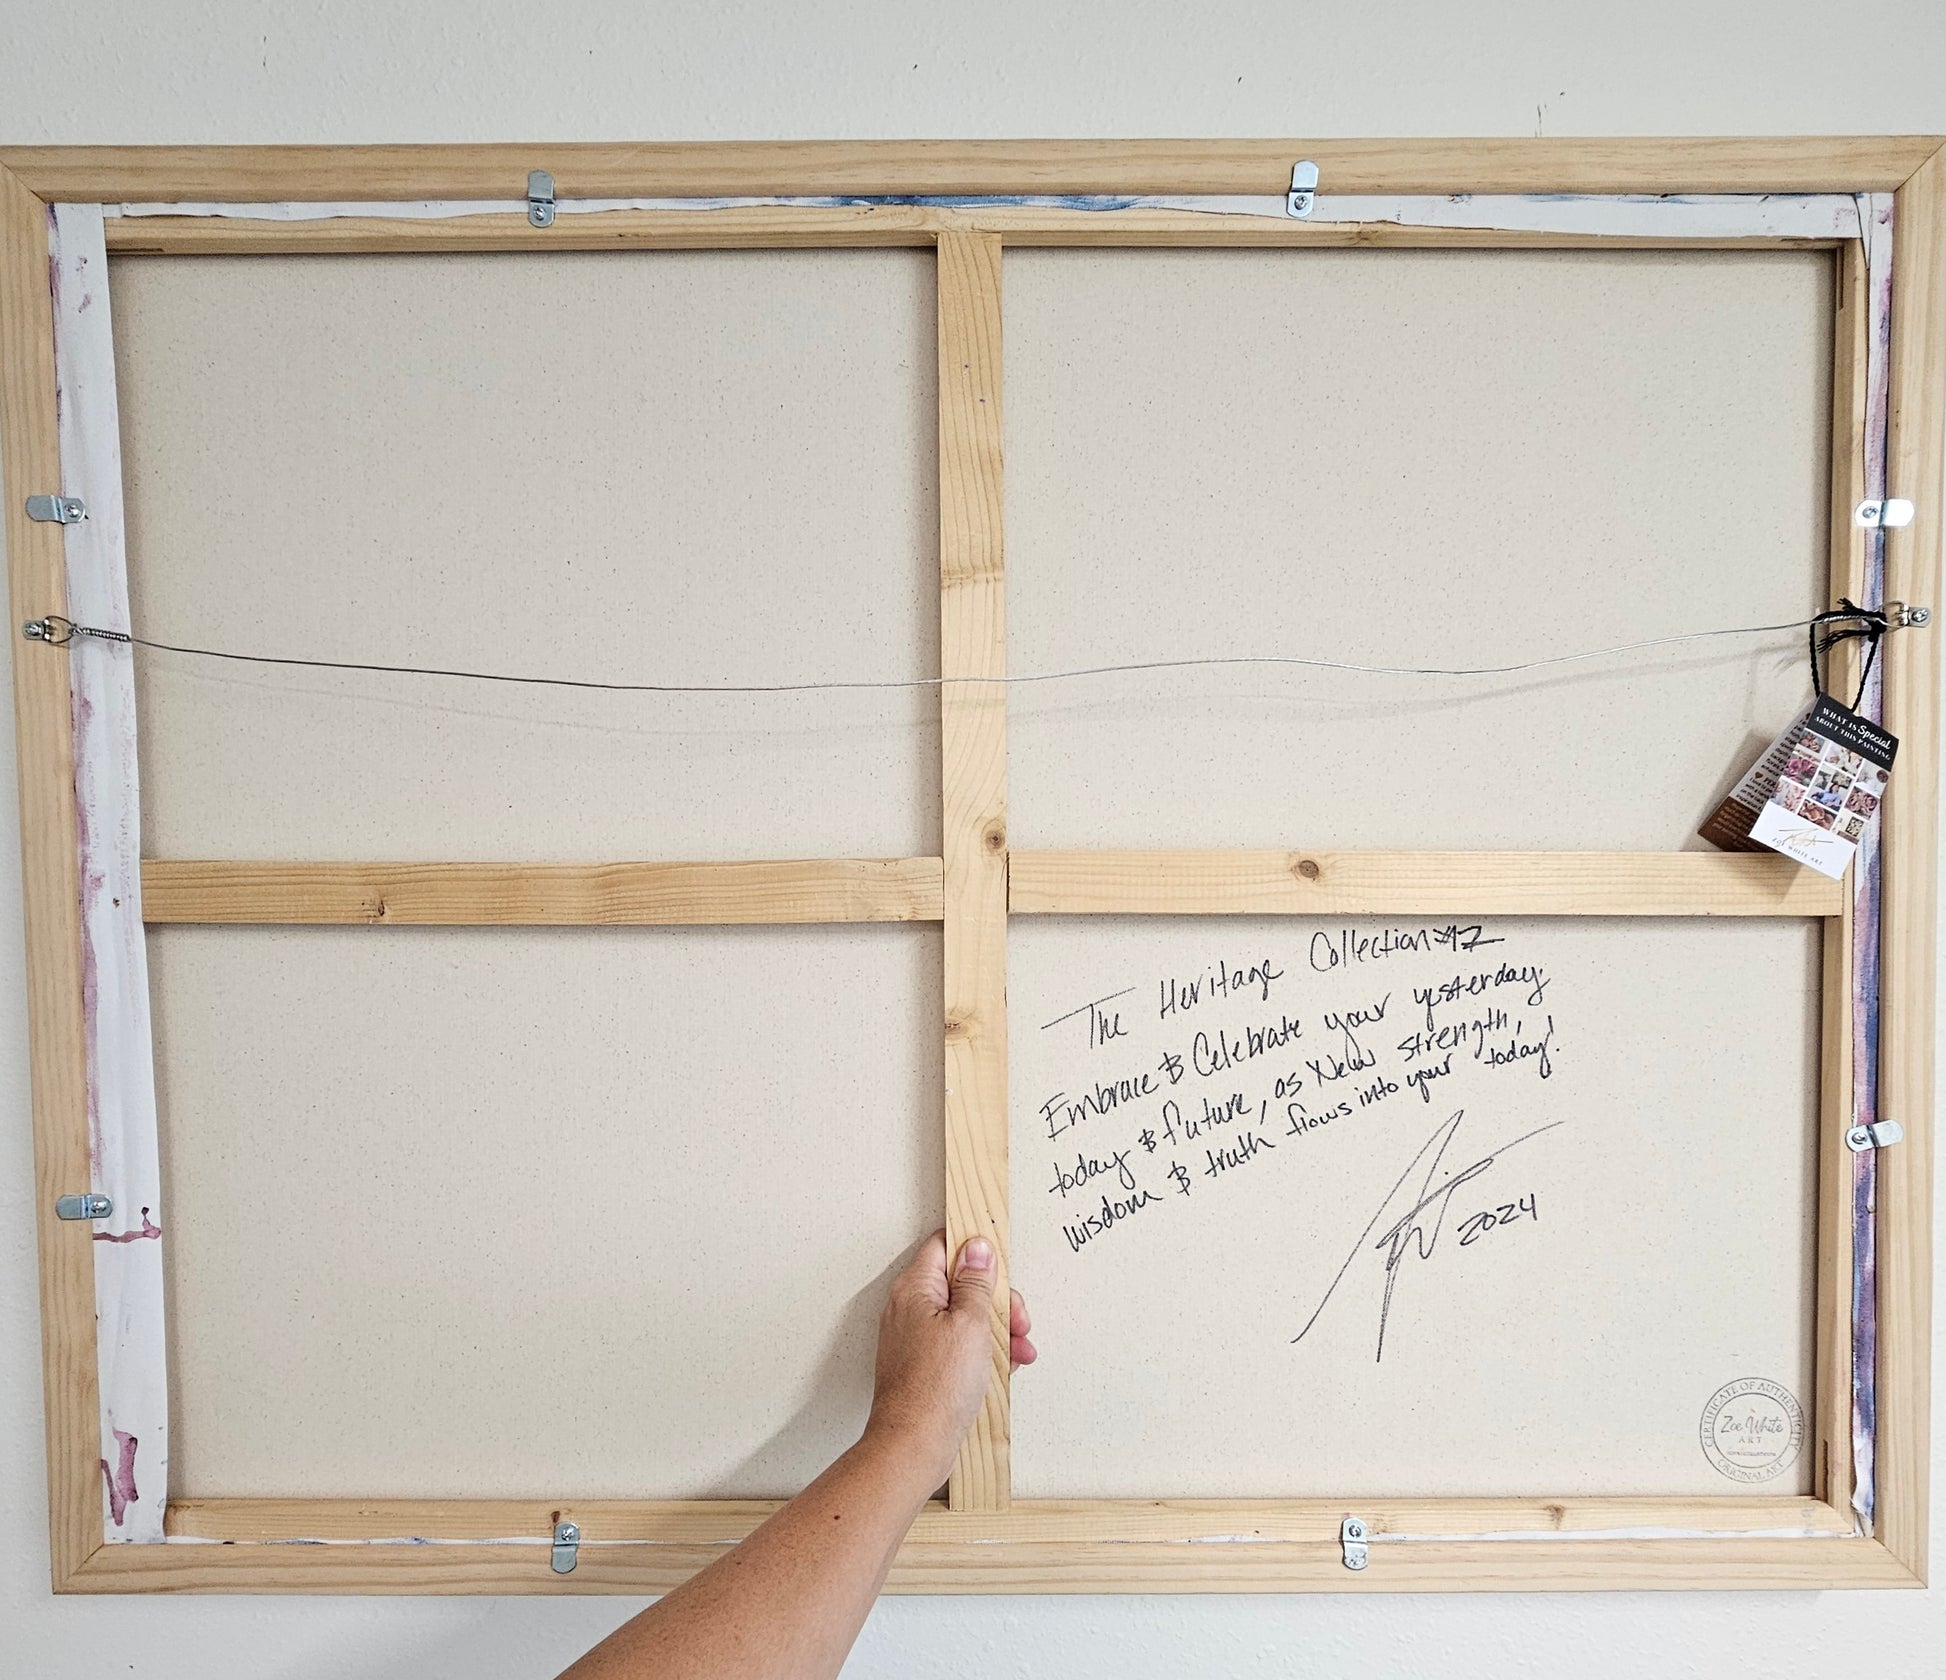 WHAT IS Special
ABOUT THIS PAINTING
WHITE ART
The Heritage Collection #12
Embrace & Celebrate your yesterday,
today & future, as New strength,
wisdom & truth flows into your today!
2024
CERTIFICATE OF AUTHENTICITY
Zoe White
ART
ORIGINAL ART